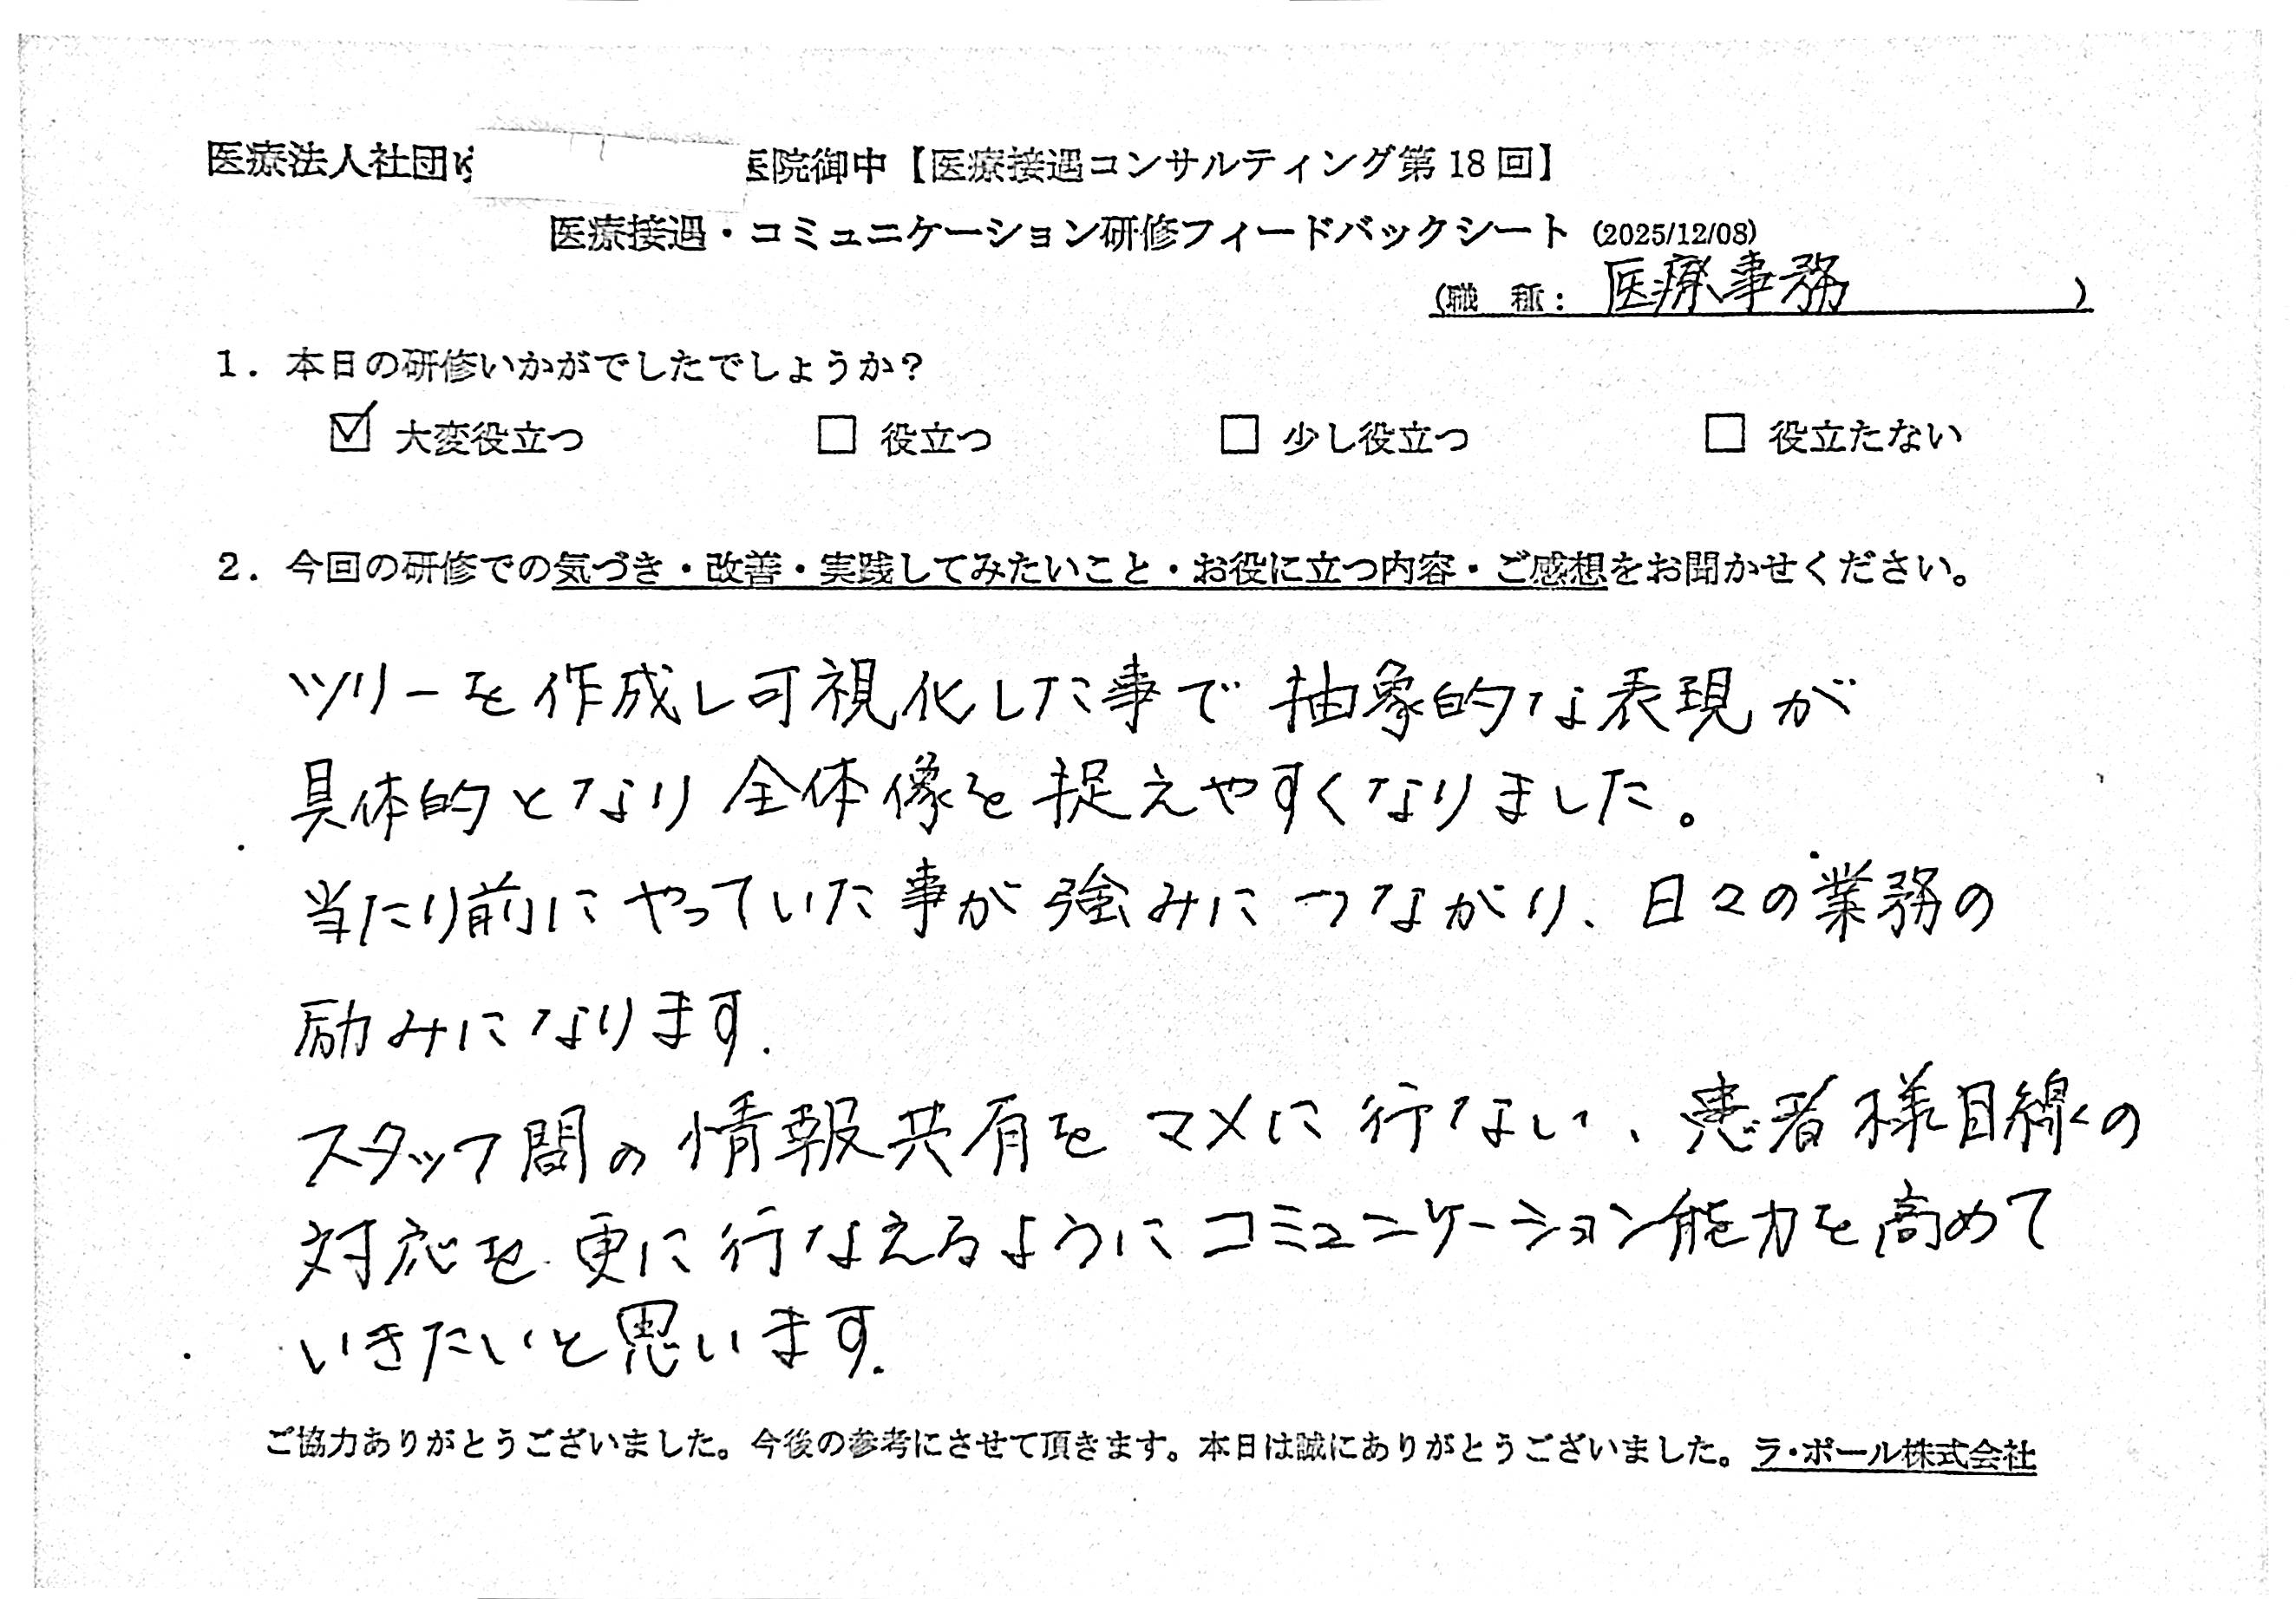 医療法人社団 医院御中【医療接遇コンサルティング第18回】
医療接遇・コミュニケーション研修フィードバックシート (2025/12/08)
(職 種: 医療事務 )
1. 本日の研修いかがでしたでしょうか?
☑ 大変役立つ □ 役立つ □ 少し役立つ □ 役立たない
2. 今回の研修での気づき・改善・実践してみたいこと・お役に立つ内容・ご感想をお聞かせください。
ツリーを作成し可視化した事で抽象的な表現が
具体的となり全体像を捉えやすくなりました。
当たり前にやっていた事が強みにつながり、日々の業務の
励みになります.
スタッフ間の情報共有をマメに行ない、患者様目線の
対応を更に行なえるようにコミュニケーション能力を高めて
いきたいと思います.
ご協力ありがとうございました。今後の参考にさせて頂きます。本日は誠にありがとうございました。ラ・ポール株式会社